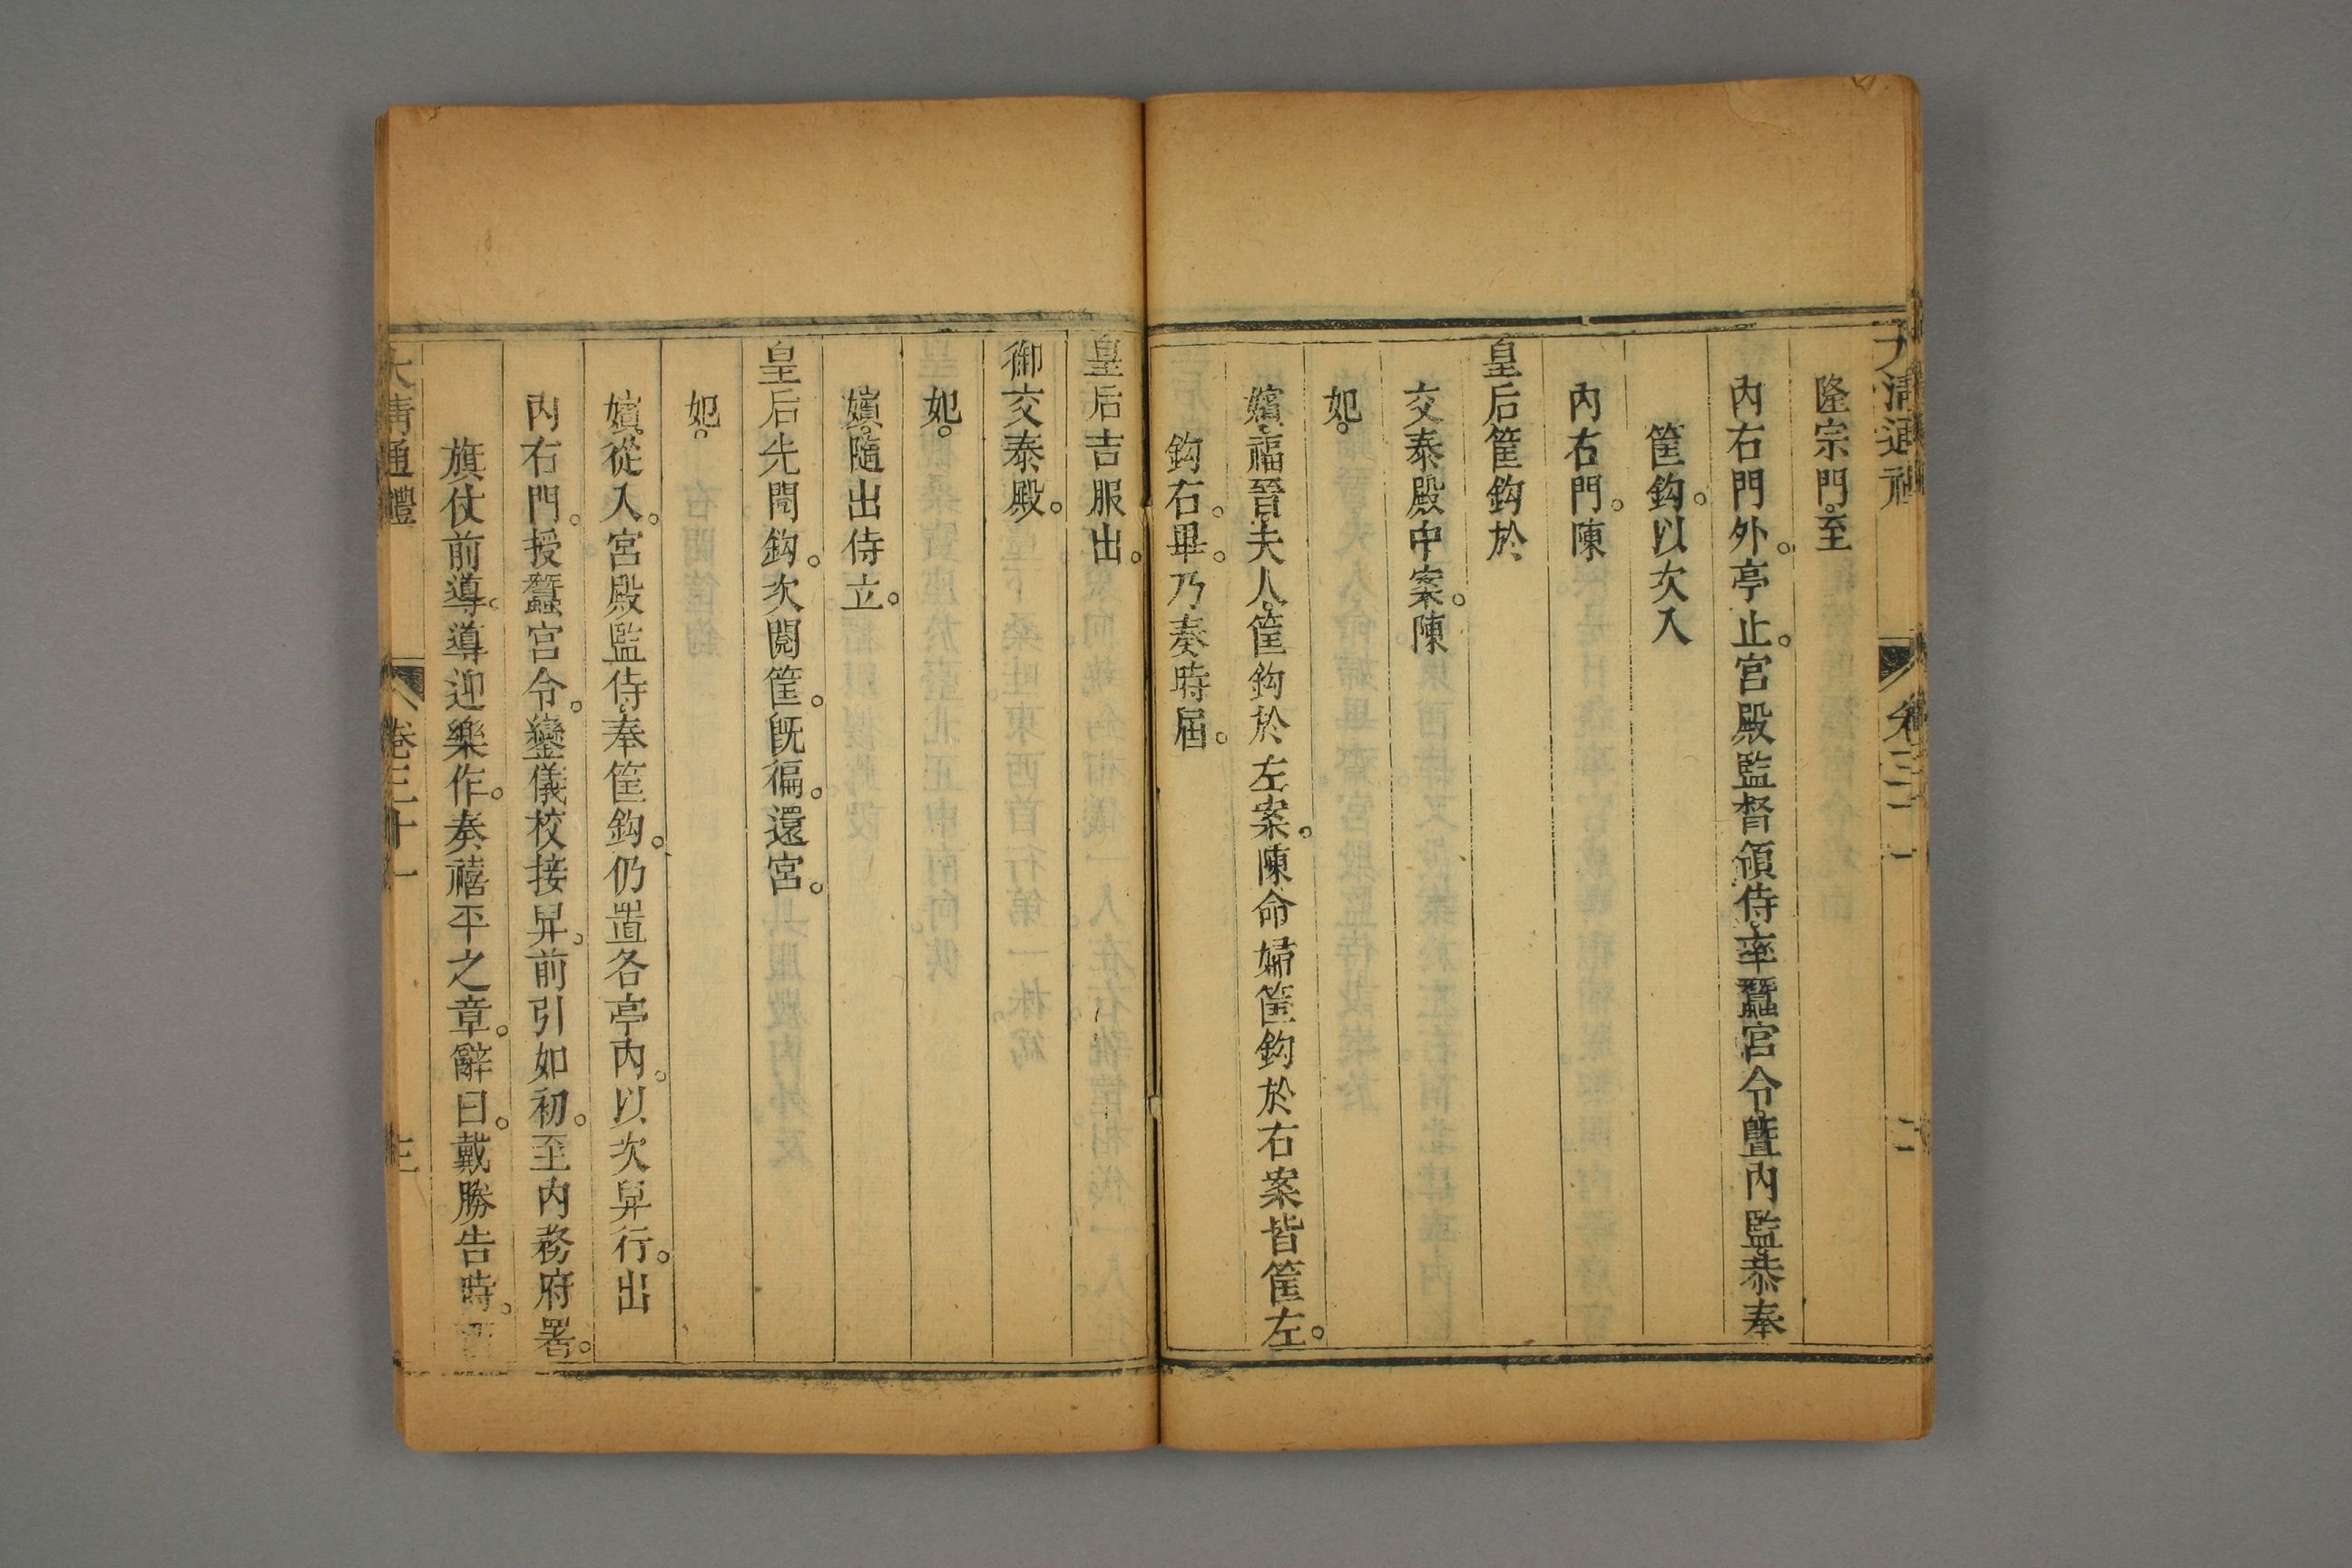 大清通禮 卷三十一 二
隆宗門。至
內右門外。亭止。宮殿監督領侍。率蠶宮令。曁內監。恭奉
筐鈎。以次入
內右門。陳
皇后筐鈎於
交泰殿中案。陳
妃。
嬪。福晉。夫人。筐鈎於左案。陳命婦筐鈎於右案皆筐左。
鈎右。畢。乃奏時屆。
皇后吉服出。
御交泰殿。
妃。
嬪。隨出侍立。
皇后先閱鈎。次閱筐。旣徧。還宮。
妃。
嬪。從入。宮殿監侍。奉筐鈎。仍置各亭內。以次舁行。出
內右門。授蠶宮令。鑾儀校接舁。前引如初。至內務府署。
旗仗前導。導迎樂作。奏禧平之章。辭曰。戴勝告時。
大清通禮 卷三十一 三